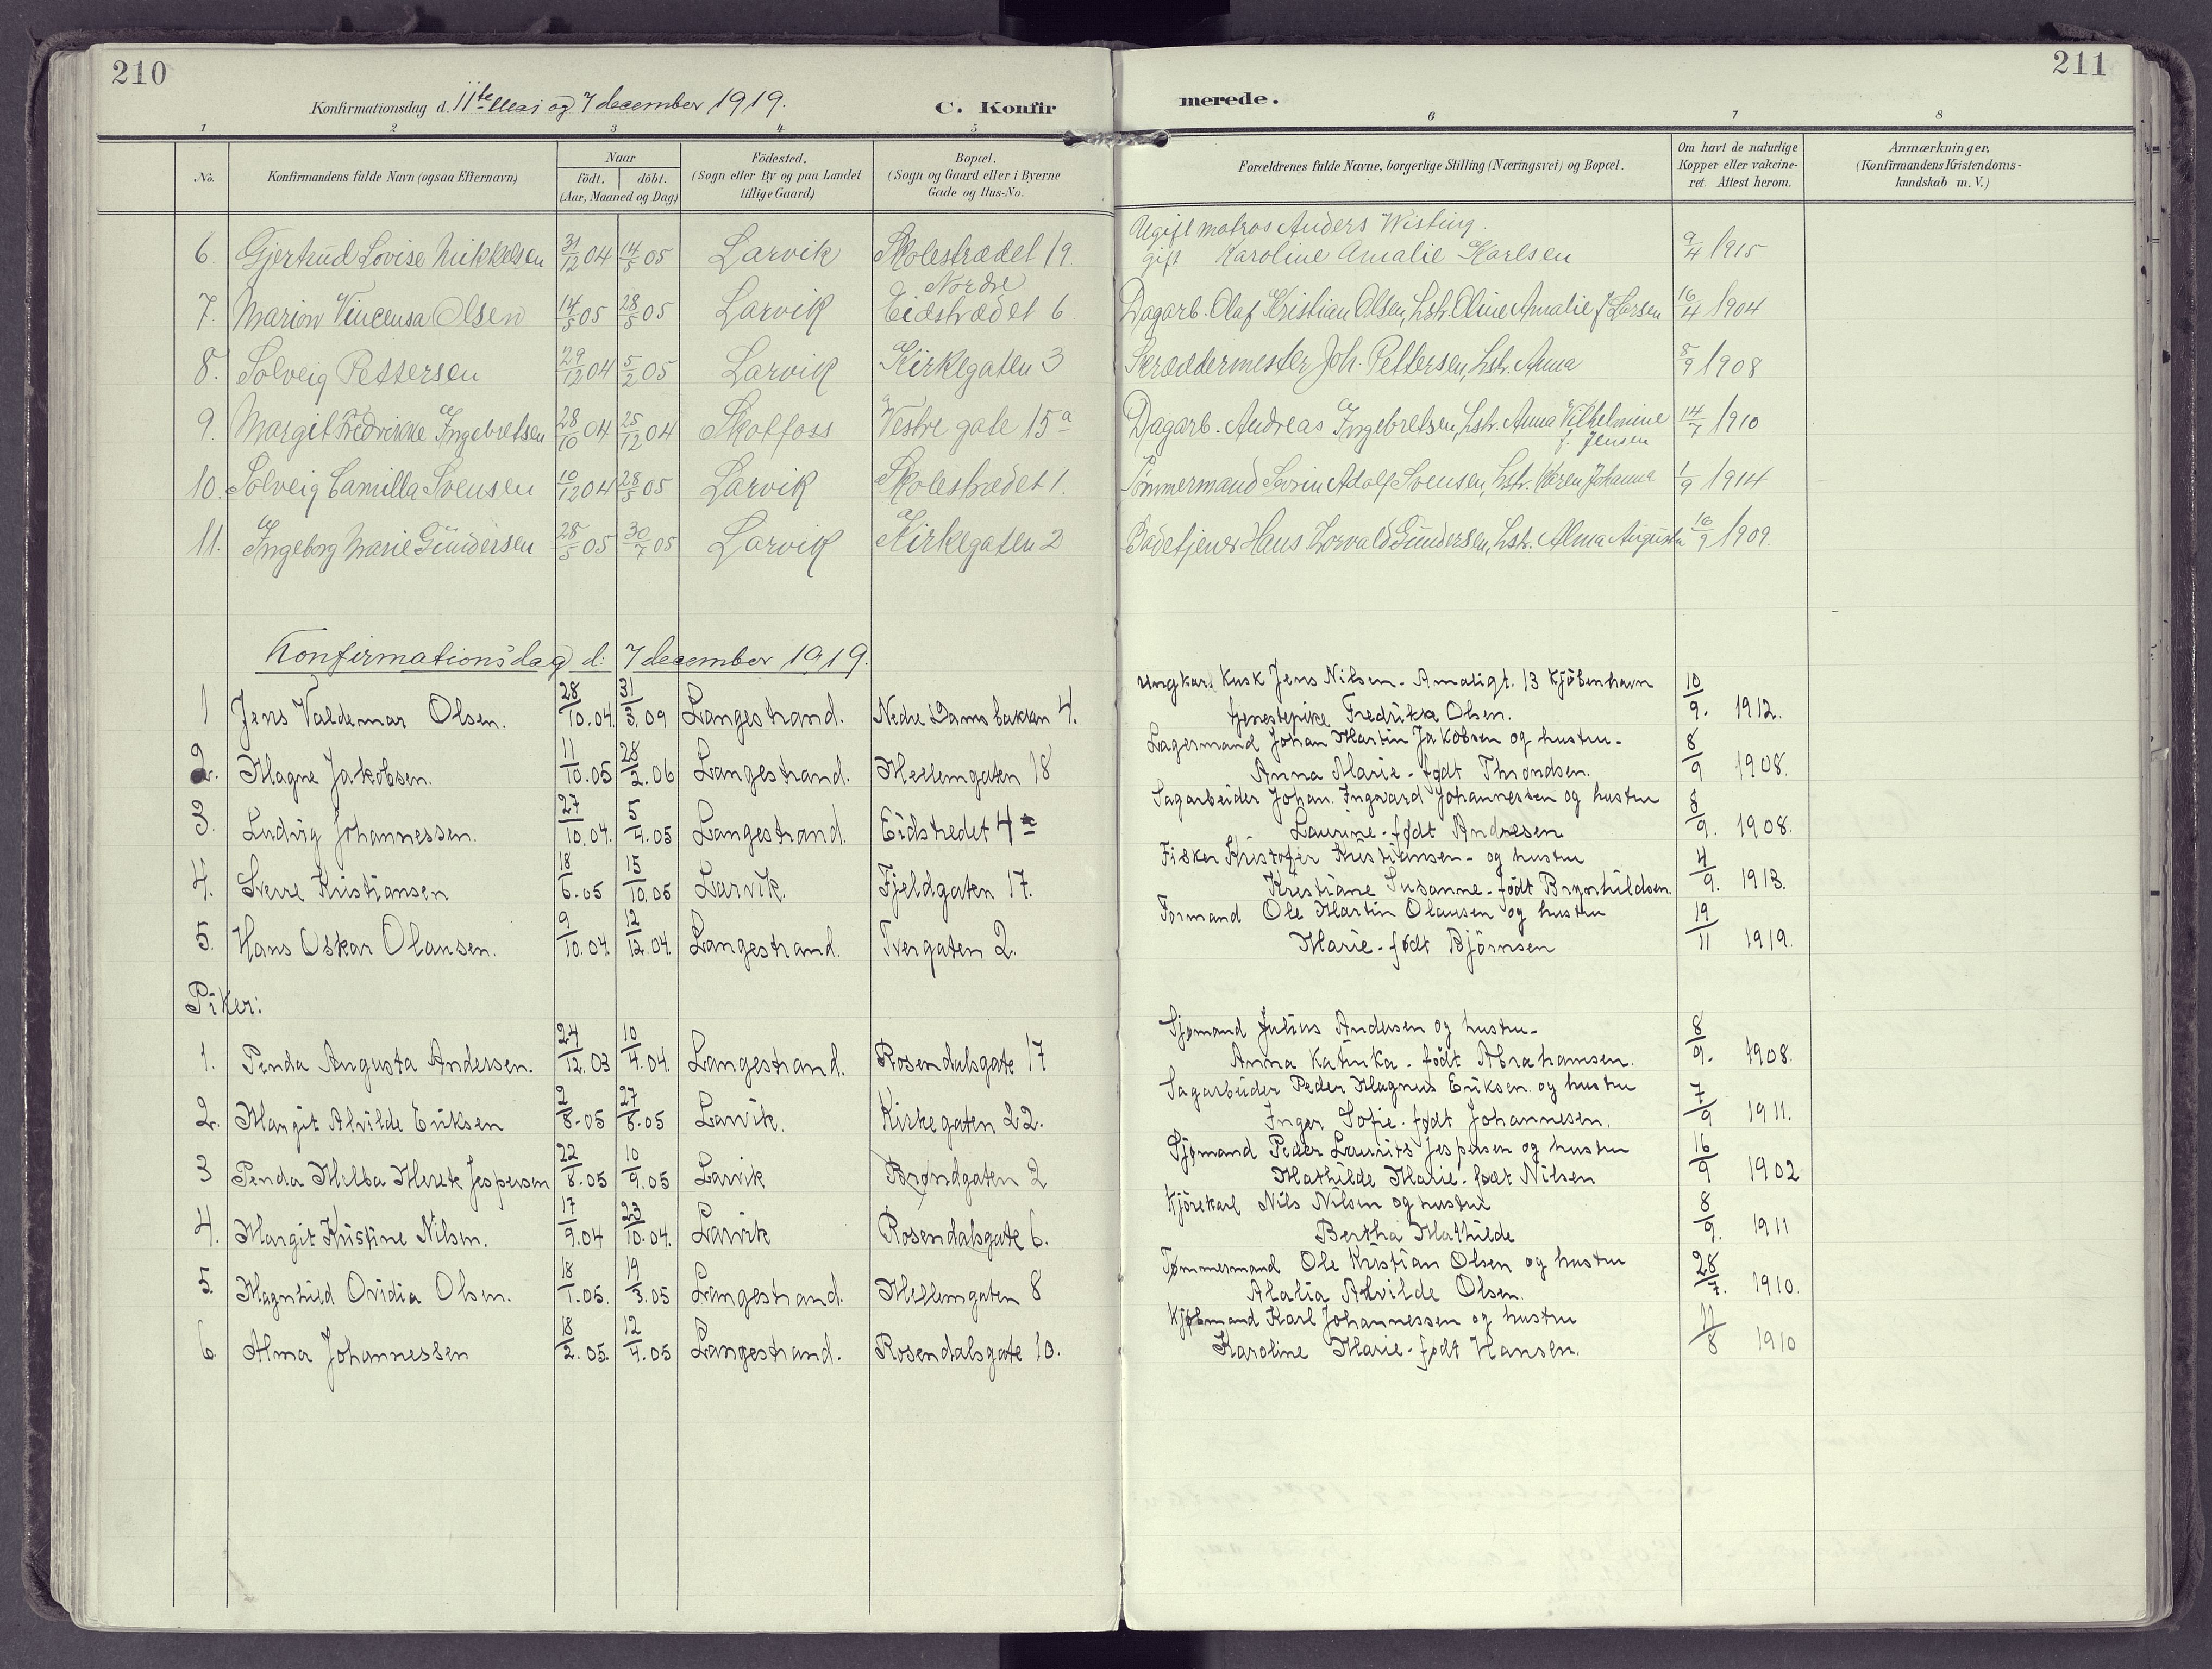 210
Konfirmationsdag d. 11te Mai og 7 december 1919.
C. Konfir
1 2 3 4 5
No. Konfirmandens fulde Navn (ogsaa Efternavn) Naar Födt. döbt. (Aar, Maaned og Dag) Födested. (Sogn eller By og paa Landet tillige Gaard) Bopæl. (Sogn og Gaard eller i Byerne Gade og Hus-No.
6. Gjertrud Lovise Mikkelsen 31/12 04 14/5 05 Larvik Skolestrædet 19.
Nordre
7. Marion Vincensa Olsen 14/5 05 28/5 05 Larvik Eidstrædet 6.
8. Solveig Pettersen 29/12 04 5/2 05 Larvik Kirkegaten 3
9. Margit Fredrikke Ingebretsen 28/10 04 25/12 04 Skotfoss Vestre gate 15a
10. Solveig Camilla Svensen 10/12 04 28/5 05 Larvik Skolestrædet 1.
11. Ingeborg Marie Gundersen 28/5 05 30/7 05 Larvik Kirkegaten 2
Konfirmationsdag d: 7 december 1919.
1 Jens Valdemar Olsen. 28/10.04. 31/3.09 Langestrand. Nedre Damsbakken 4.
2. Magne Jakobsen. 11/10.05 28/2.06 Langestrand. Mellemgaten 18
3. Ludvig Johannessen. 27/10.04. 5/4.05 Langestrand. Eidstredet 4a
4. Sverre Kristiansen 18/6.05 15/10.05 Larvik. Fjeldgaten 17.
5. Hans Oskar Olausen. 9/10.04. 12/12.04. Langestrand. Tvergaten 2.
Piker:
1. Penda Augusta Andersen. 24/12.03 10/4.04. Langestrand. Rosendalsgate 17
2. Margit Alvilde Eriksen 2/8-05 27/8.05 Larvik. Kirkegaten 22.
3 Penda Melba Merete Jespersen 22/8.05 10/9.05 Larvik Brøndgaten 2
4. Margit Kristine Nilsen. 17/9.04 23/10.04. Larvik Rosendalsgate 6.
5. Magnhild Ovidia Olsen. 18/1.05. 19/3.05 Langestrand. Mellemgaten 8
6. Alma Johannessen 18/2.05. 12/4.05 Langestrand. Rosendalsgate 10.
211
merede.
6 7 8
Forældrenes fulde Navne, borgerlige Stilling (Næringsvei) og Bopæl. Om havt de naturlige Kopper eller vakcineret. Attest herom. Anmærkninger, (Konfirmandens Kristendomskundskab m. V.)
Ugift matros Anders Wisting.
gift Karoline Amalie Karlsen 9/4 1915
Dagarb. Olaf Kristian Olsen, hstr. Oline Amalie f Larsen 16/4 1904
Skræddermester Joh. Pettersen, hstr. Anna 8/9 1908
Dagarb. Andreas Ingebretsen, hstr. Anna Vilhelmine 14/7 1910
f. Jensen
Tømmermand Sørin Adolf Svensen, hstr. Karen Johanna 1/9 1914
Badetjener Hans Thorvald Gundersen, hstr. Alma Augusta 16/9 1909.
Ungkarl Kusk Jens Nilsen - Amaligt. 13 Kjøbenhavn
tjenestepike Fredrikke Olsen. 10/9. 1912.
Lagermand Johan Martin Jakobsen og hustru -
Anna Marie - født Throndsen. 8/9 1908.
Sagarbeider Johan Ingvard Johannessen og hustru
Laurine - født Andresen 8/9. 1908.
Fisker Kristofer Kristiansen - og hustru
Kristiane Susanne - født Brynhildsen. 4/9. 1913.
Formand Ole Martin Olausen og hustru
Marie - født Bjørnsen 19/11 1919.
Sjømand Julius Andersen og hustru -
Anna Katinka - født Abrahamsen. 8/9. 1908.
Sagarbeider Peder Magnus Eriksen og hustru
Inger Sofie - født Johannesen. 7/9 1911.
Sjømand Peder Laurits Jespersen og hustru
Mathilde Marie - født Nilsen 16/9 1902
Kjørekarl Nils Nilsen og hustru
Bertha Mathilde 8/9. 1911
Tømmermand Ole Kristian Olsen og hustru
Alalia Alvilde Olsen. 28/7. 1910.
Kjøbmand Karl Johannessen og hustru
Karoline Marie - født Hansen. 11/8 1910